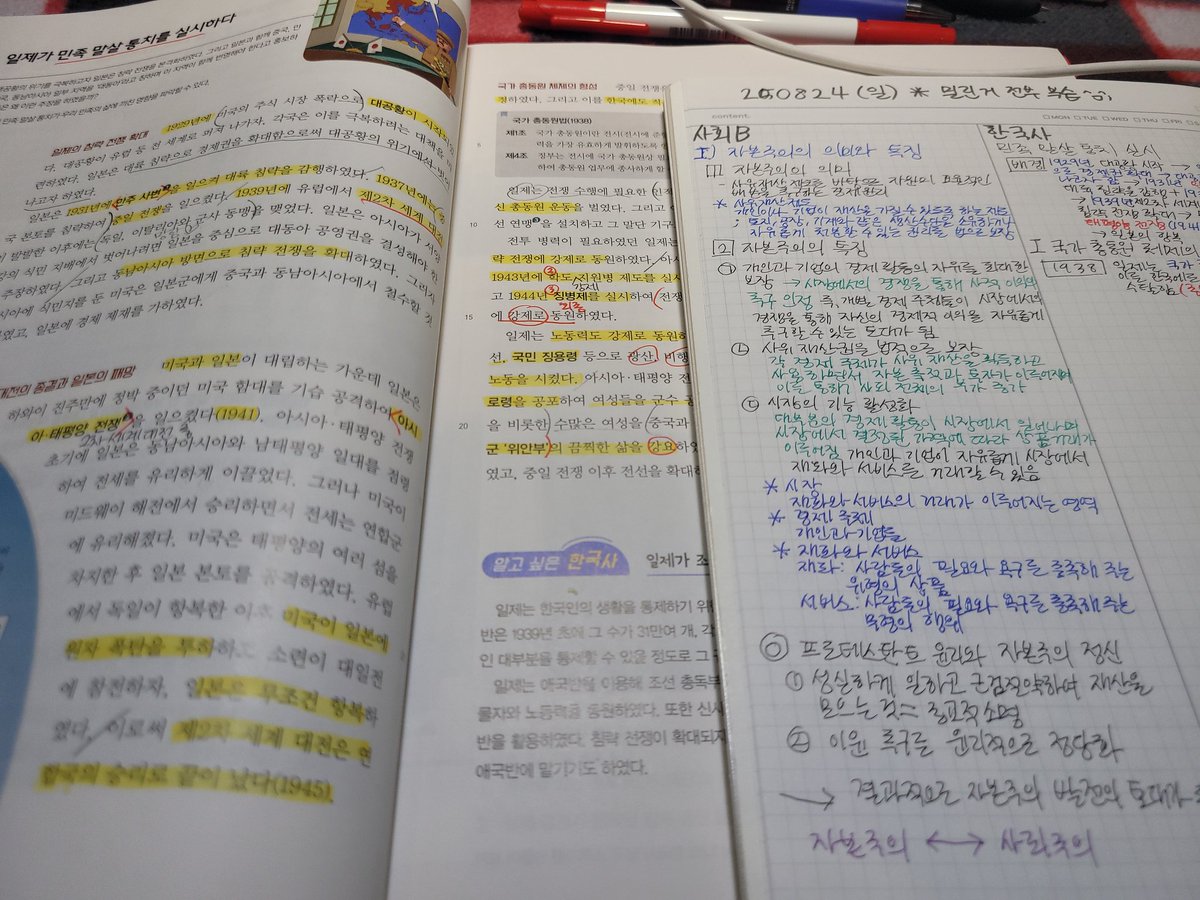 일제가 민족 말살 통치를 실시하다
일제의 침략 전쟁 확대
1929년에 미국의 주식 시장 폭락으로 대공황이 시작되
다. 대공황이 유럽 등 전 세계로 퍼져 나가자, 각국은 이를 극복하려는 대책을 마
련하였다. 일본은 대륙 침략으로 경제권을 확대함으로써 대공황의 위기에서 벗어
나고자 하였다.
일본은 1931년에 만주 사변을 일으켜 대륙 침략을 감행하였다. 1937년에는
국 본토를 침략하여 중일 전쟁을 일으켰다. 1939년에 유럽에서 제2차 세계 대전
이 발발한 이후에는 독일, 이탈리아와 군사 동맹을 맺었다. 일본은 아시아가 서양
의 식민 지배에서 벗어나려면 일본을 중심으로 대동아 공영권을 결성해야 한
주장하였다. 그리고 동남아시아 방면으로 침략 전쟁을 확대하였다. 그러자
시아에 식민지를 둔 미국은 일본군에게 중국과 동남아시아에서 철수할 것
하였고, 일본에 경제 제재를 가하였다.
대전의 종결과 일본의 패망
미국과 일본이 대립하는 가운데 일본은
하와이 진주만에 정박 중이던 미국 함대를 기습 공격하여 아시
아·태평양 전쟁을 일으켰다(1941). 아시아·태평양 전쟁
초기에 일본은 동남아시아와 남태평양 일대를 점령
하여 전세를 유리하게 이끌었다. 그러나 미국이
미드웨이 해전에서 승리하면서 전세는 연합군
에 유리해졌다. 미국은 태평양의 여러 섬을
차지한 후 일본 본토를 공격하였다. 유럽
에서 독일이 항복한 이후 미국이 일본에
원자 폭탄을 투하하고 소련이 대일전
에 참전하자, 일본은 무조건 항복하
였다. 이로써 제2차 세계 대전은 연
합국의 승리로 끝이 났다(1945).
국가 총동원 체제의 형성 중일 전쟁
정하였다. 그리고 이를 한국에도 적
국가 총동원법(1938)
제1조 국가 총동원이란 전시(전시에 준
력을 가장 유효하게 발휘하도록
제4조 정부는 전시에 국가 총동원상 필
하여 총동원 업무에 종사하게 할
일제는 전쟁 수행에 필요한 인적
신 총동원 운동을 벌였다. 그리고
선 연맹을 설치하고 그 말단 기구
전투 병력이 필요하였던 일제는
략 전쟁에 강제로 동원하였다.
1943년에 학도 지원병 제도를 실시
강제
고 1944년 징병제를 실시하여 전쟁
에 강제로 동원하였다.
일제는 노동력도 강제로 동원하
선, 국민 징용령 등으로 광산, 비행
노동을 시켰다. 아시아·태평양 전
로령을 공포하여 여성들을 군수 공
을 비롯한 수많은 여성을 중국과
군 '위안부'의 끔찍한 삶을 강요하
였고, 중일 전쟁 이후 전선을 확대하
알고 싶은 한국사 일제가 조
일제는 한국인의 생활을 통제하기 위
반은 1939년 초에 그 수가 31만여 개, 각
인 대부분을 통제할 수 있을 정도로 그
일제는 애국반을 이용해 조선 총독부
물자와 노동력을 동원하였다. 또한 신사
반을 활용하였다. 침략 전쟁이 확대되자
애국반에 맡기기도 하였다.
250824 (일) * 밀린거 전부 복습
content
□MON □TUE □WED □THU □FRI
사회B
I) 자본주의의 의미와 특징
1 자본주의의 의미
- 사유재산 제도를 바탕으로 자원의 효율적인
배분을 추구하는 경제원리
* 사유재산 제도
개인이나 기업이 재산을 가질 수 있도록 하는 제도
; 토지, 공장, 기계와 같은 생산수단을 소유하거나
자유롭게 처분할 수 있는 권리를 법으로 보장
2 자본주의의 특징
㉠ 개인과 기업의 경제 활동의 자유를 최대한
보장 → 시장에서의 경쟁을 통해 사적 이익의
추구 인정 즉, 개별 경제 주체들이 시장에서의
경쟁을 통해 자신의 경제적 이익을 자유롭게
추구할 수 있는 토대가 됨
㉡ 사유 재산권을 법적으로 보장
각 경제 주체가 사유 재산을 획득하고
사용하면서 자본 축적과 투자가 이루어지며
이를 통해 사회 전체의 부가 증가
㉢ 시장의 기능 활성화
대부분의 경제 활동이 시장에서 일어나며
시장에서 결정된 가격에 따라 상품거래가
이루어짐 개인과 기업이 자유롭게 시장에서
재화와 서비스를 거래할 수 있음
* 시장
재화와 서비스의 거래가 이루어지는 영역
* 경제 주체
개인과 기업들
* 재화와 서비스
재화: 사람들의 필요와 욕구를 충족해 주는
유형의 상품
서비스: 사람들의 필요와 욕구를 충족해 주는
무형의 행위
◎ 프로테스탄트 윤리와 자본주의 정신
① 성실하게 일하고 근검절약하여 재산을
모으는 것 = 종교적 소명
② 이윤 추구를 윤리적으로 정당화
→ 결과적으로 자본주의 발전의 토대가
자본주의 ↔ 사회주의
한국사
민족 말살 통치 실시
배경
1929년 대공황 시작
I 국가 총동원 체제의
1938 일제는 국가
이를 한국에도